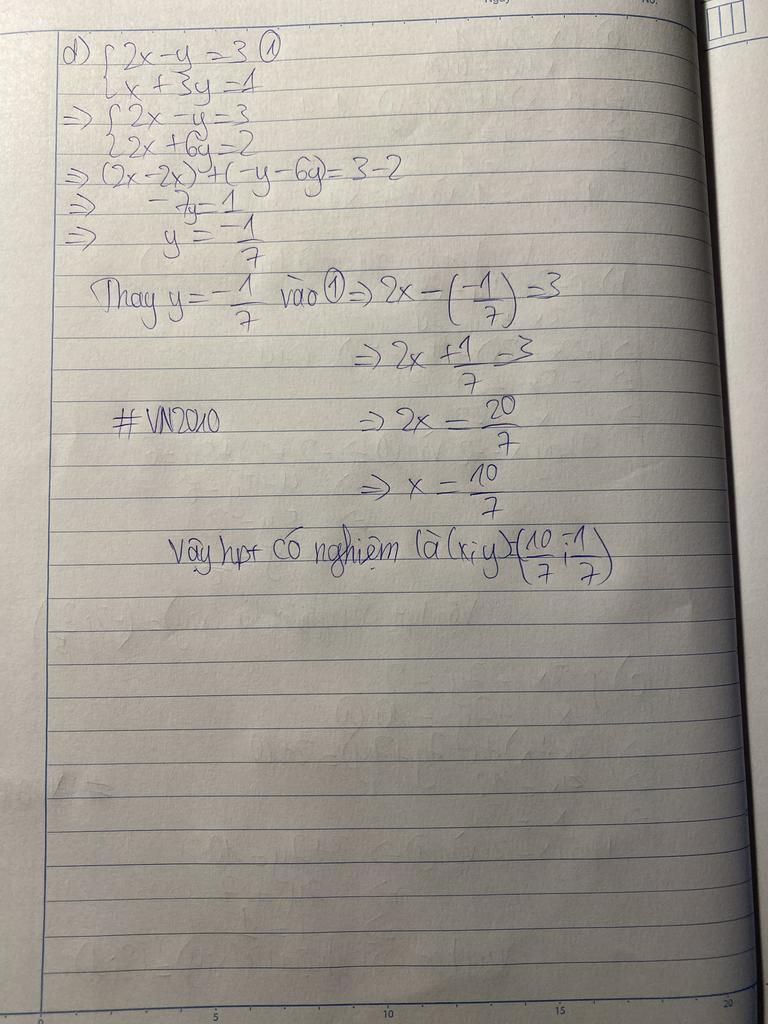 No.
d) { 2x - y = 3 ①
{ x + 3y = 1
=> { 2x - y = 3
{ 2x + 6y = 2
=> (2x - 2x) + (-y - 6y) = 3 - 2
=> - 7y = 1
=> y = -1/7
Thay y = -1/7 vào ① => 2x - (-1/7) = 3
=> 2x + 1/7 = 3
# VN2010 => 2x = 20/7
=> x = 10/7
Vậy hpt có nghiệm là (x; y) = (10/7; -1/7)
0 5 10 15 20